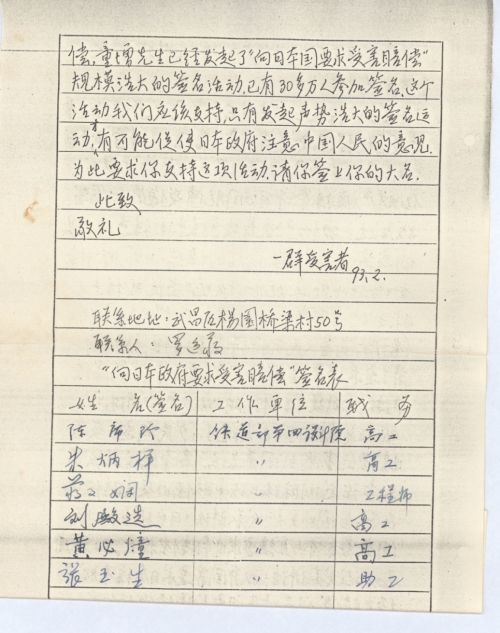 偿,童增先生已经发起了"向日本国要求受害赔偿"
规模浩大的签名活动,已有30多万人参加签名,这个
活动我们应该支持,只有发起声势浩大的签名运
动,才有可能促使日本政府注意中国人民的意见.
为此要求你支持这项活动,请你签上你的大名.
此致
敬礼
一群受害者
93.2.
联系地址:武昌区杨园桥梁村50号
联系人:
"向日本政府要求受害赔偿"签名表
姓 名(签名) 工作单位 职 务
陈 铁道部第四设计院 高工
朱炳祥 〃 高工
蒋 〃 工程师
刘 〃 高工
黄必 〃 高工
张玉生 〃 助工